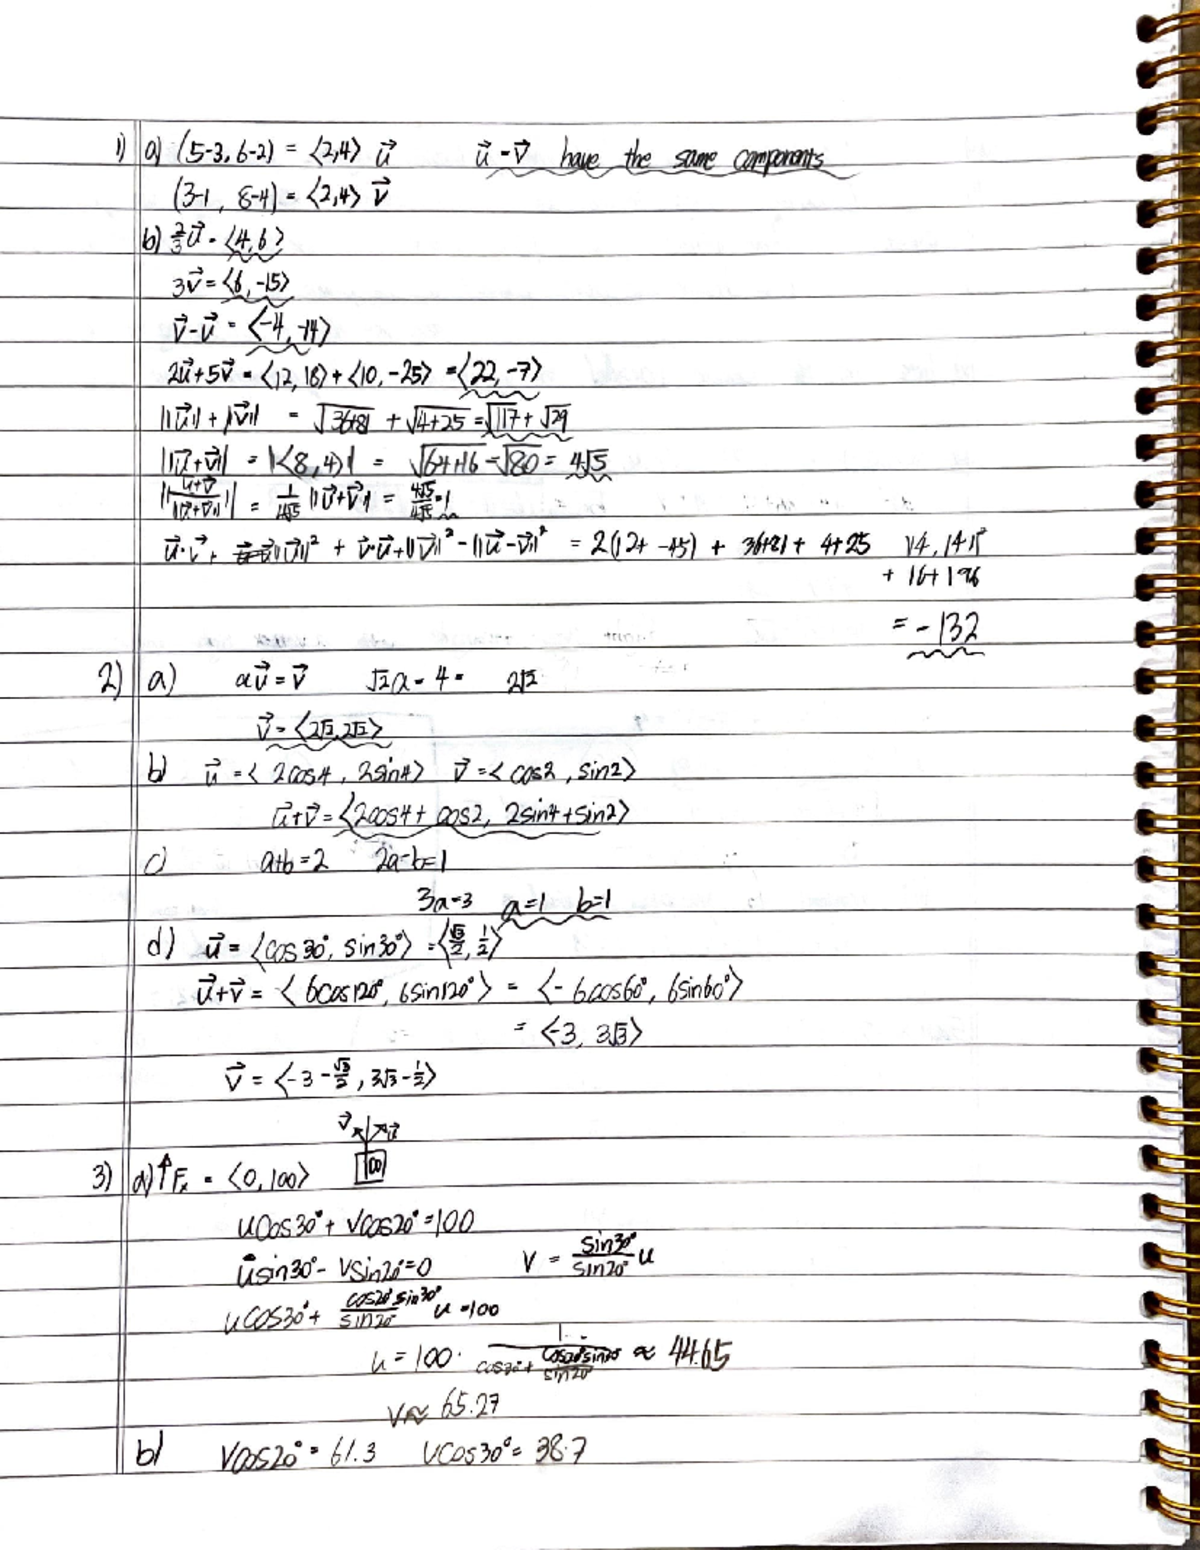 1) a) (5-3, 6-2) = ⟨2,4⟩ u⃗ u⃗ = v⃗ have the same components
(3-1, 8-4) = ⟨2,4⟩ v⃗
b) 2/3 u⃗ = ⟨4,6⟩
3v⃗ = ⟨6,-15⟩
v⃗-u⃗ = ⟨-4,-14⟩
2u⃗+5v⃗ = ⟨12,18⟩+⟨10,-25⟩ = ⟨22,-7⟩
||u⃗|| + ||v⃗|| = √36+81 + √4+25 = √117 + √29
||u⃗+v⃗|| = |⟨8,4⟩| = √64+16 = √80 = 4√5
||u⃗+v⃗/||u⃗+v⃗|| || = 1/4√5 ||u⃗+v⃗|| = 4√5/4√5 = 1
u⃗·v⃗ + ||u⃗||² + v⃗·u⃗+||v⃗||² - ||u⃗-v⃗||² = 2(12+ -45) + 36+81 + 4+25
+ 16+196
= -132
2) a) au⃗ = v⃗ √2a = 4 = 2√2
v⃗ = ⟨2√2,2√2⟩
b) u⃗ = ⟨2cos4, 2sin4⟩ v⃗ = ⟨cos2, sin2⟩
u⃗+v⃗ = ⟨2cos4+cos2, 2sin4+sin2⟩
c) a+b=2 2a-b=1
3a=3 a=1 b=1
d) u⃗ = ⟨cos30°, sin30°⟩ = ⟨√3/2, 1/2⟩
u⃗+v⃗ = ⟨6cos120°, 6sin120°⟩ = ⟨-6cos60°, 6sin60°⟩
= ⟨-3, 3√3⟩
v⃗ = ⟨-3-√3/2, 3√3-1/2⟩
v⃗ u⃗
3) a) ↑Fx = ⟨0,100⟩ 100
ucos30°+vcos20°=100
usin30°-vsin20°=0 v = sin30°/sin20° u
ucos30°+ cos20°sin30°/sin20° u =100
u = 100· 1/cos30°+cos20°sin30°/sin20° ≈ 44.65
v≈ 65.27
b) vcos20° = 61.3 ucos30° = 38.7